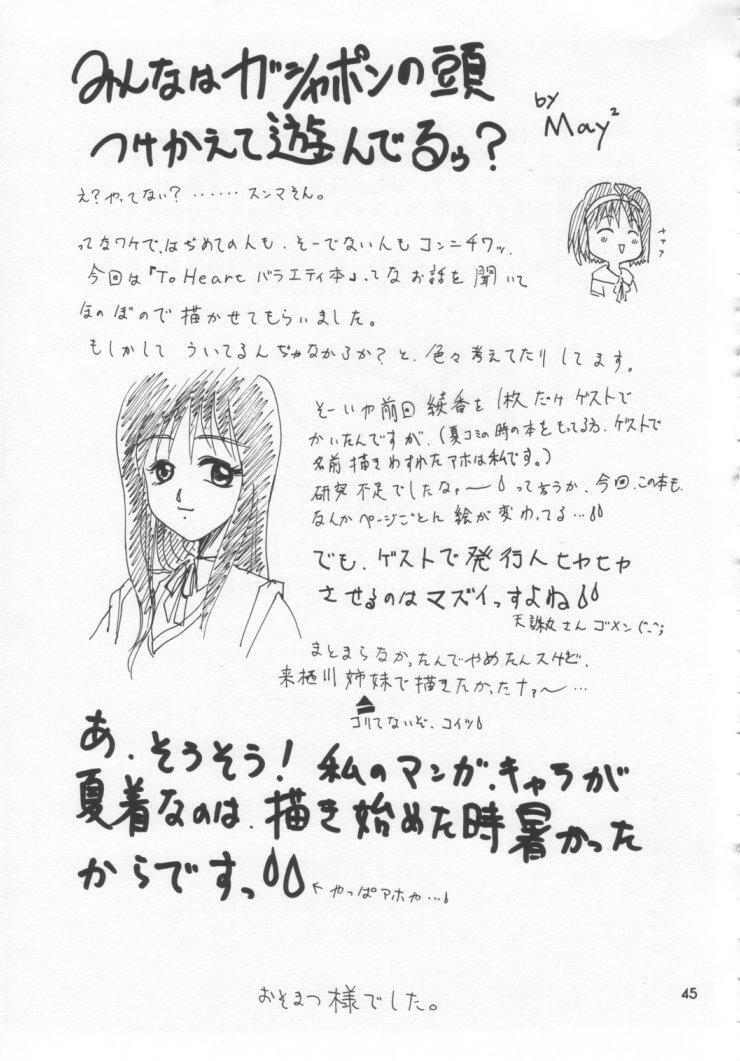 みんなはガシャポンの頭
つけかえて遊んでるゥ?
by
May²
え?やってない?……スンマそん。
ってなワケで、はぢめての人も、そーでない人もコンニチワッ。
ナナナ
今回は『To Heart バラエティ本』ってなお話を聞いて
ほのぼので描かせてもらいました。
もしかして ういてるんぢゃなかろか?と、色々考えてたりしてます。
そーいや前回 綾香を1枚だけゲストで
かいたんですが、(夏コミの時の本をもってる方、ゲストで
名前描きわすれたアホは私です。)
研究不足でしたなァ〜 って言うか、今回、この本も、
なんかページごとん 絵が変わってる…
でも、ゲストで発行人ヒヤヒヤ
させるのはマズイっすよね
天誅丸さん ゴメン(^_^;
まとまらなかったんでやめたんスけど、
来栖川姉妹で描きたかったナァ〜…
コリてないぞ、コイツ
あ、そうそう! 私のマンガ、キャラが
夏着なのは、描き始めた時暑かった
からですっ
←やっぱアホや…
おそまつ様でした。
45